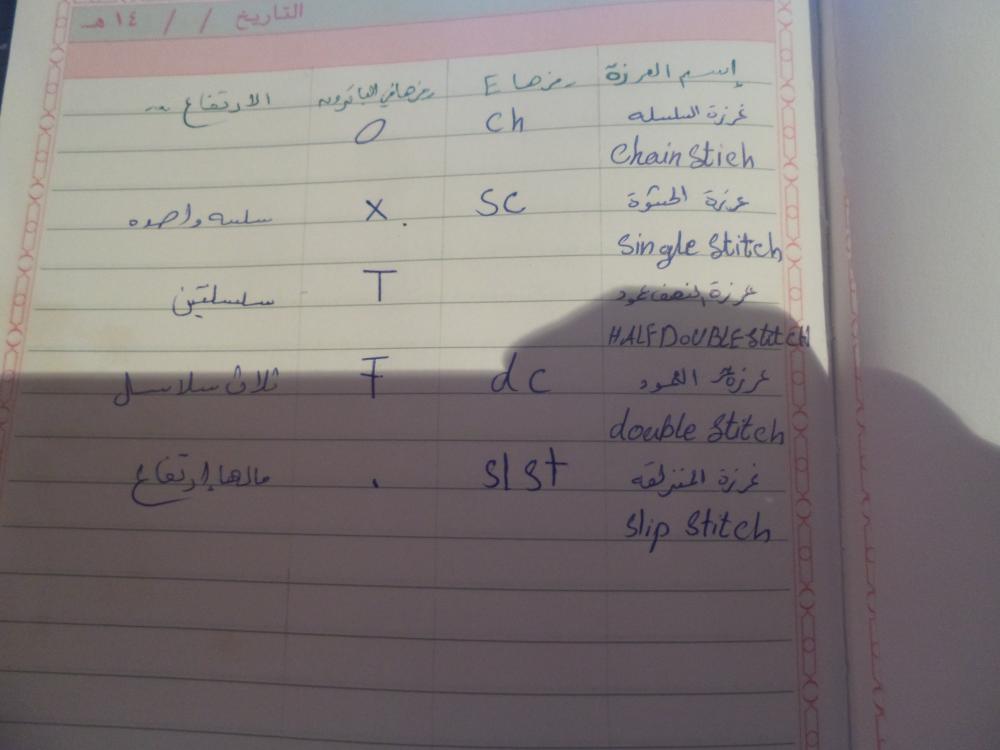 التاريخ / / ١٤هـ
إسم الغرزة رمزها E رمزها في الباترون الارتفاع
غرزة السلسله ch O
Chain Stich
غرزة الحشوة SC X سلسه واحده
Single Stitch
غرزة النصف عمود T سلسلتين
HALF DOUBLE Stitch
غرزة العمود dc Ŧ ثلاث سلاسل
double Stitch
غرزة المنزلقه sl st . مالها إرتفاع
Slip Stitch